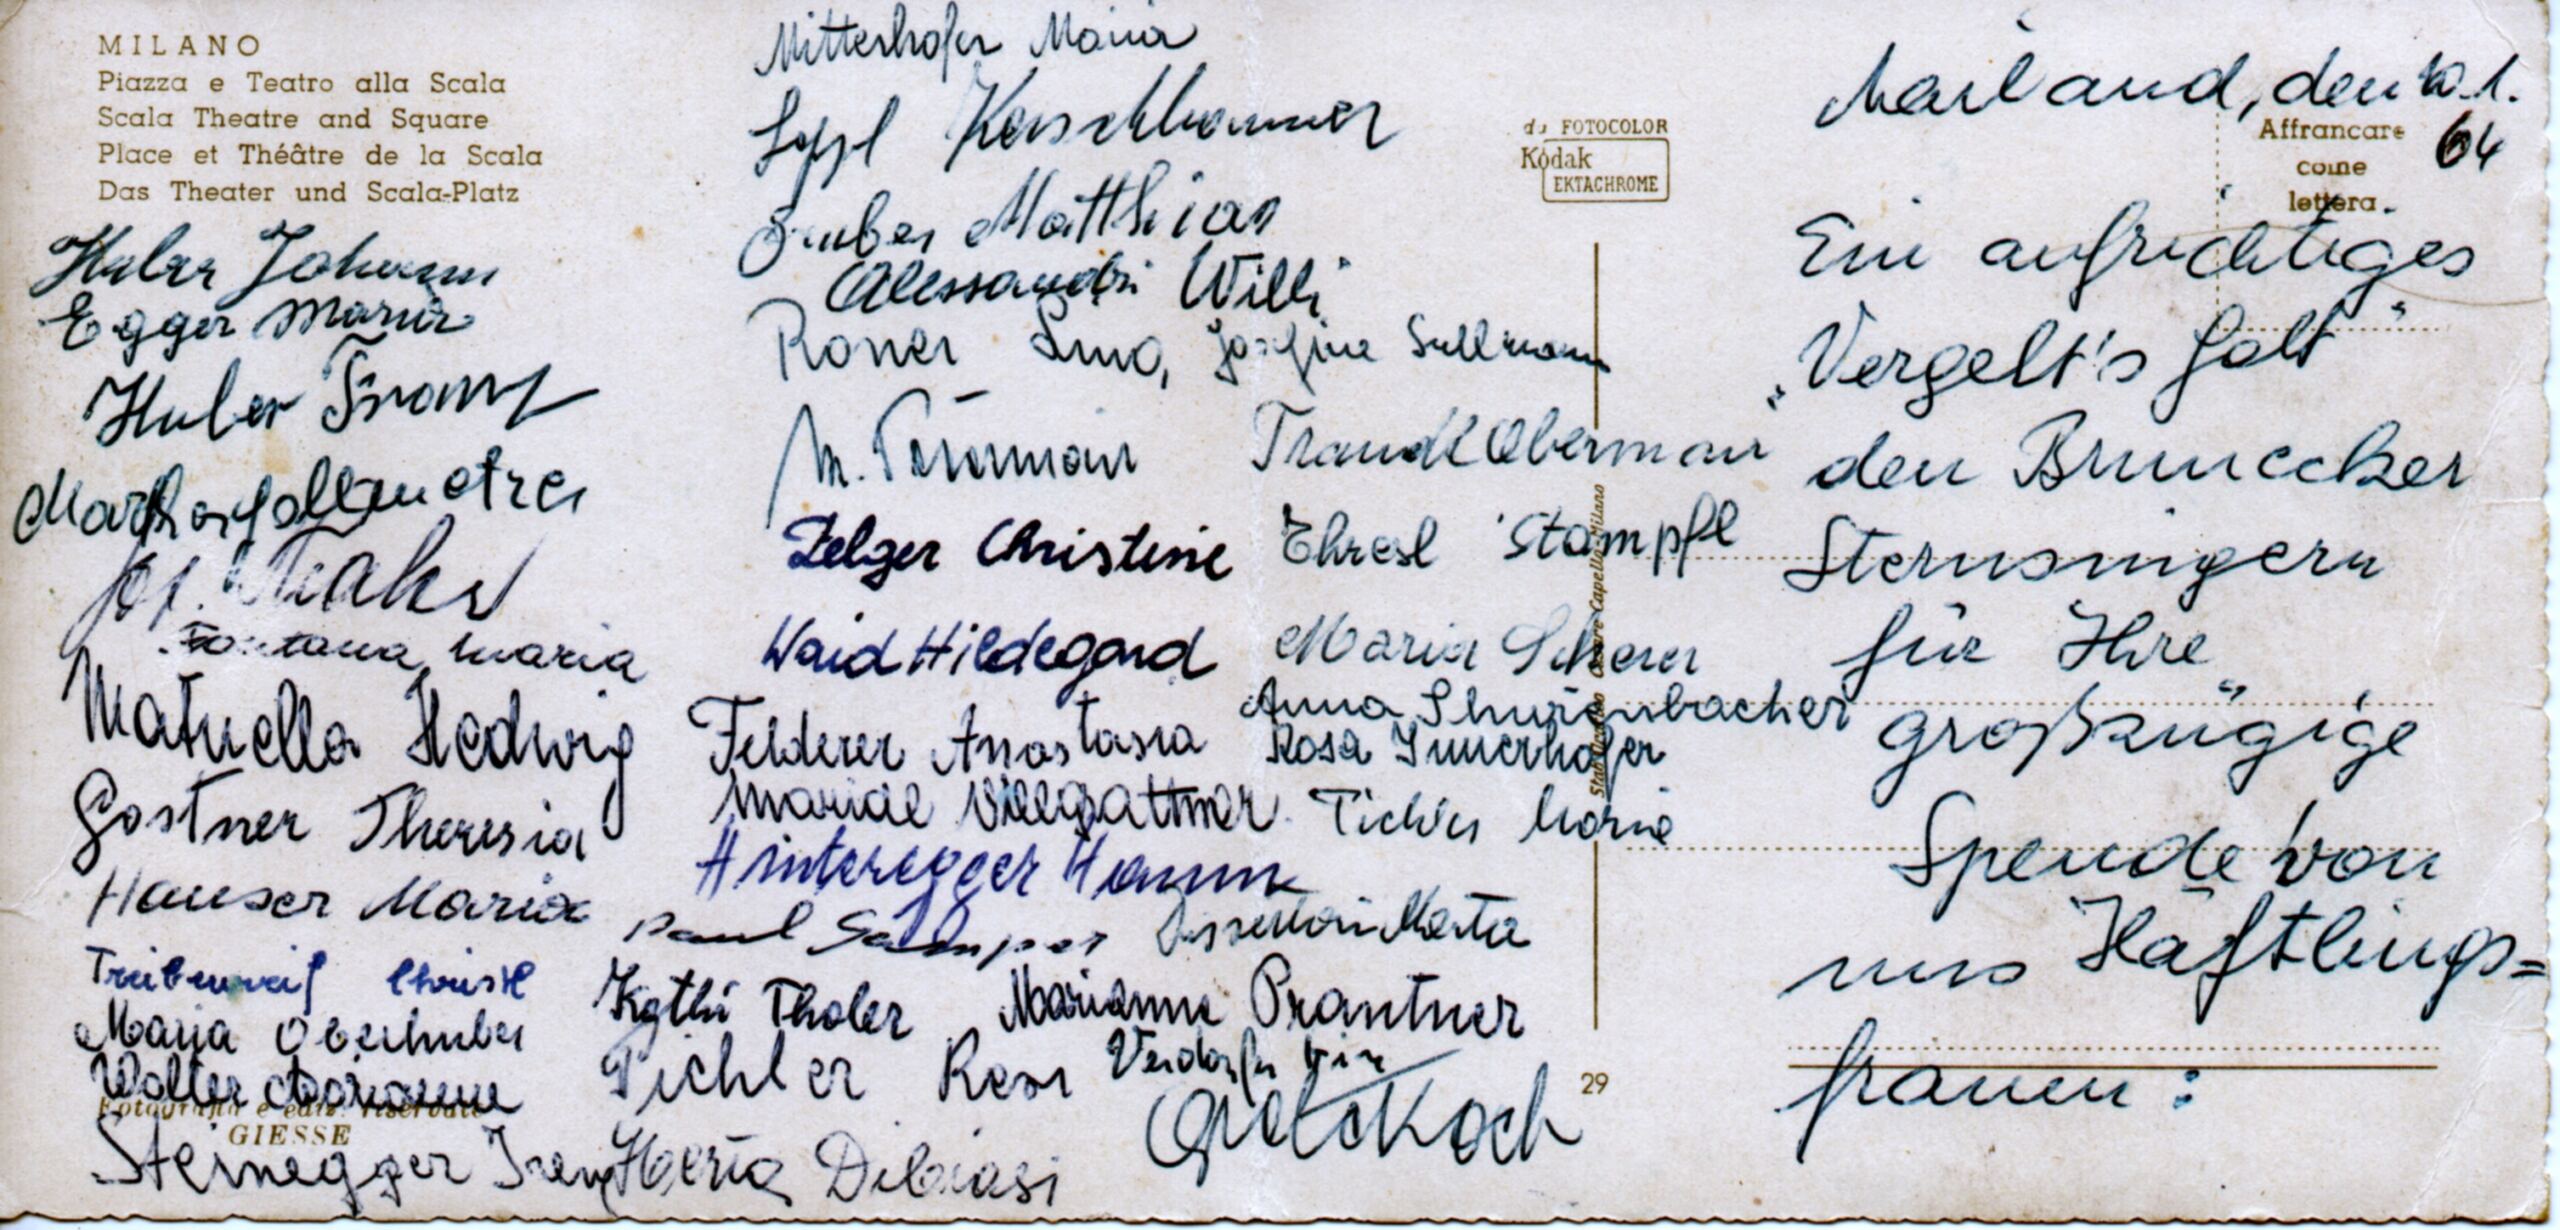 MILANO
Piazza e Teatro alla Scala
Scala Theatre and Square
Place et Théâtre de la Scala
Das Theater und Scala-Platz
Huber Johann
Egger Maria
Huber Franz
Fontana Maria
Matuella Hedwig
Gostner Theresia
Hauser Maria
Maria Oberhuber
Walter Marianne
Fotografia e ediz. riservate
GIESSE
Steinegger Irene
Mitterhofer Maria
Sepl Kerschbaumer
Gruber Matthias
Alessandri Willi
Roner Luno, Josefine Sullmann
M. Traudl Obermair
Zelger Christine Thresl Stampfl
Waid Hildegard Maria Scherer
Anna Thurenbacher
Felderer Anastasia Rosa Innerhofer
Mariedl Villgrattner Pichler Maria
Hinteregger Hanna
Paul Marta
Kathi Thaler Marianne Prantner
Pichler Resi
Grete Koch
Herta Dibiasi
da FOTOCOLOR
Kodak
EKTACHROME
Cesare Capello-Milano
29
Mailand, den 10.1.
64
Affrancare
come
lettera.
Ein aufrichtiges
„Vergelt's Gott"
den Brunecker
Sternsingern
für Ihre
großzügige
Spende von
uns Häftlings=
frauen: